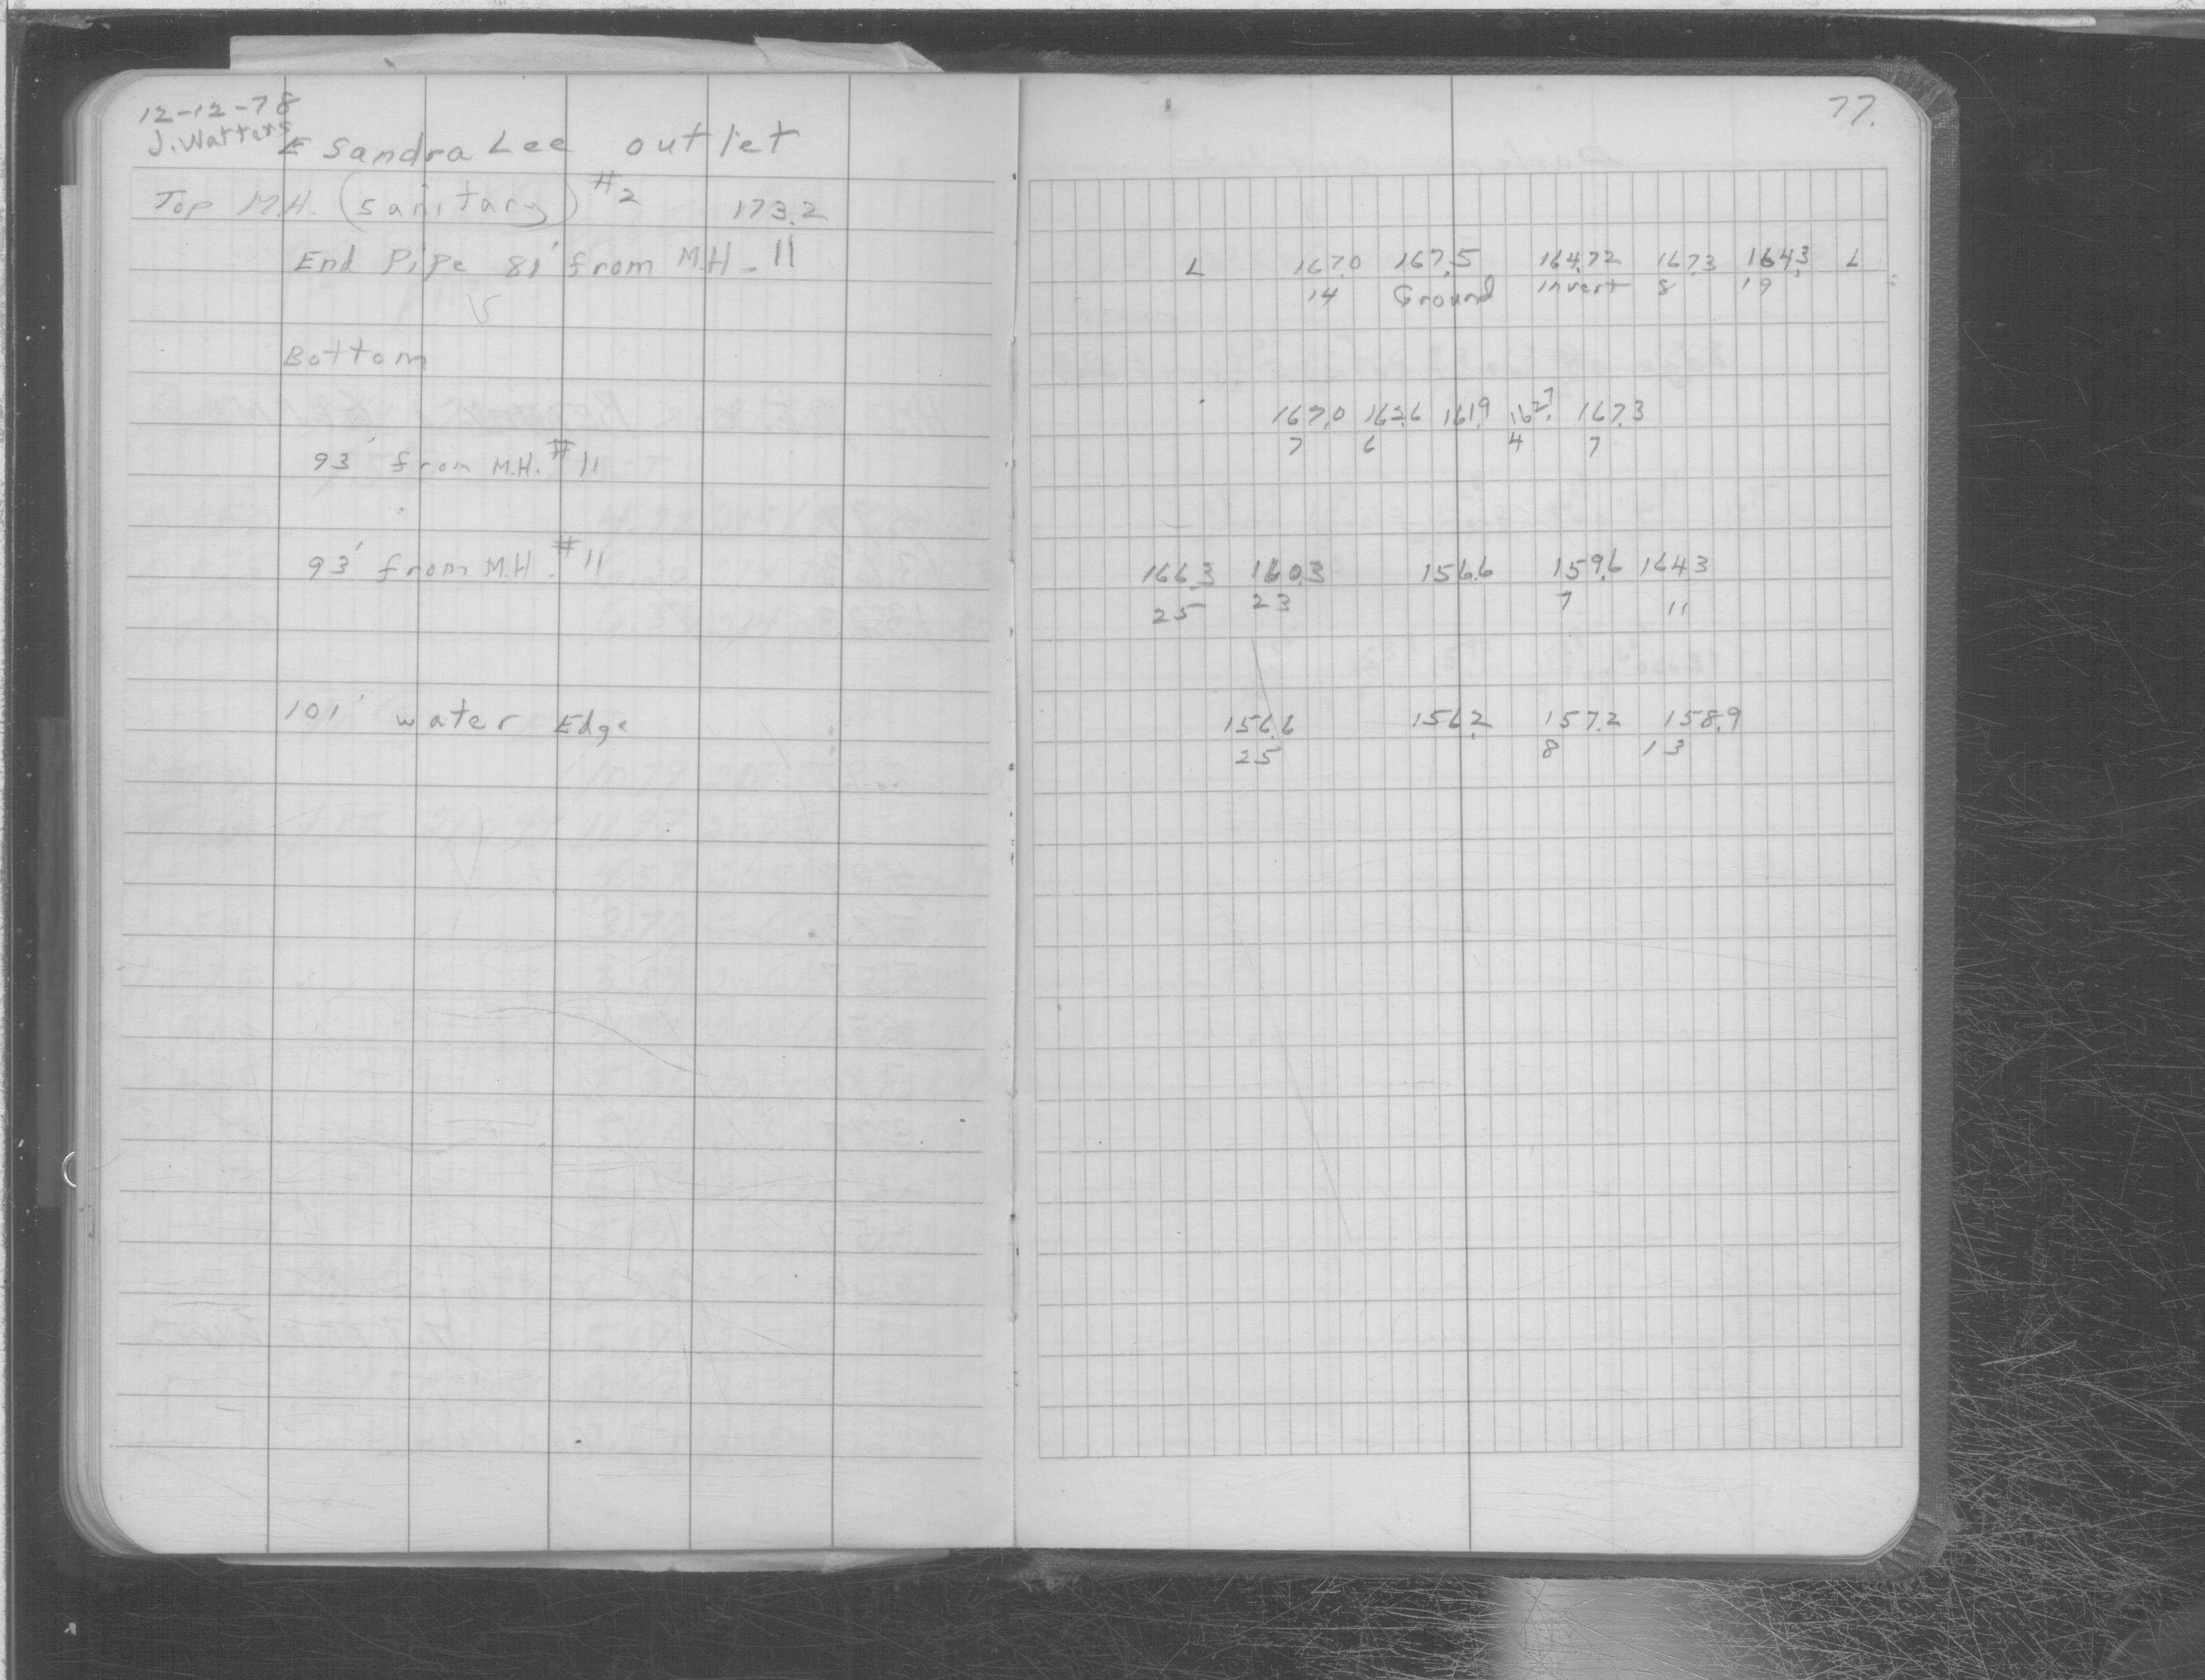 12-12-78
J. Watters
E Sandra Lee outlet
Top M.H. (sanitary) #2 173.2
End Pipe 81' from M.H. - 11
Bottom
93' from M.H. #11
93' from M.H. #11
101' water Edge
77.
L 167.0 167.5 164.72 167.3 164.3 L
14 Ground invert 8 19
167.0 162.6 161.9 162.7 167.3
7 6 4 7
166.3 160.3 156.6 159.6 164.3
25 23 7 11
156.6 156.2 157.2 158.9
25 8 13